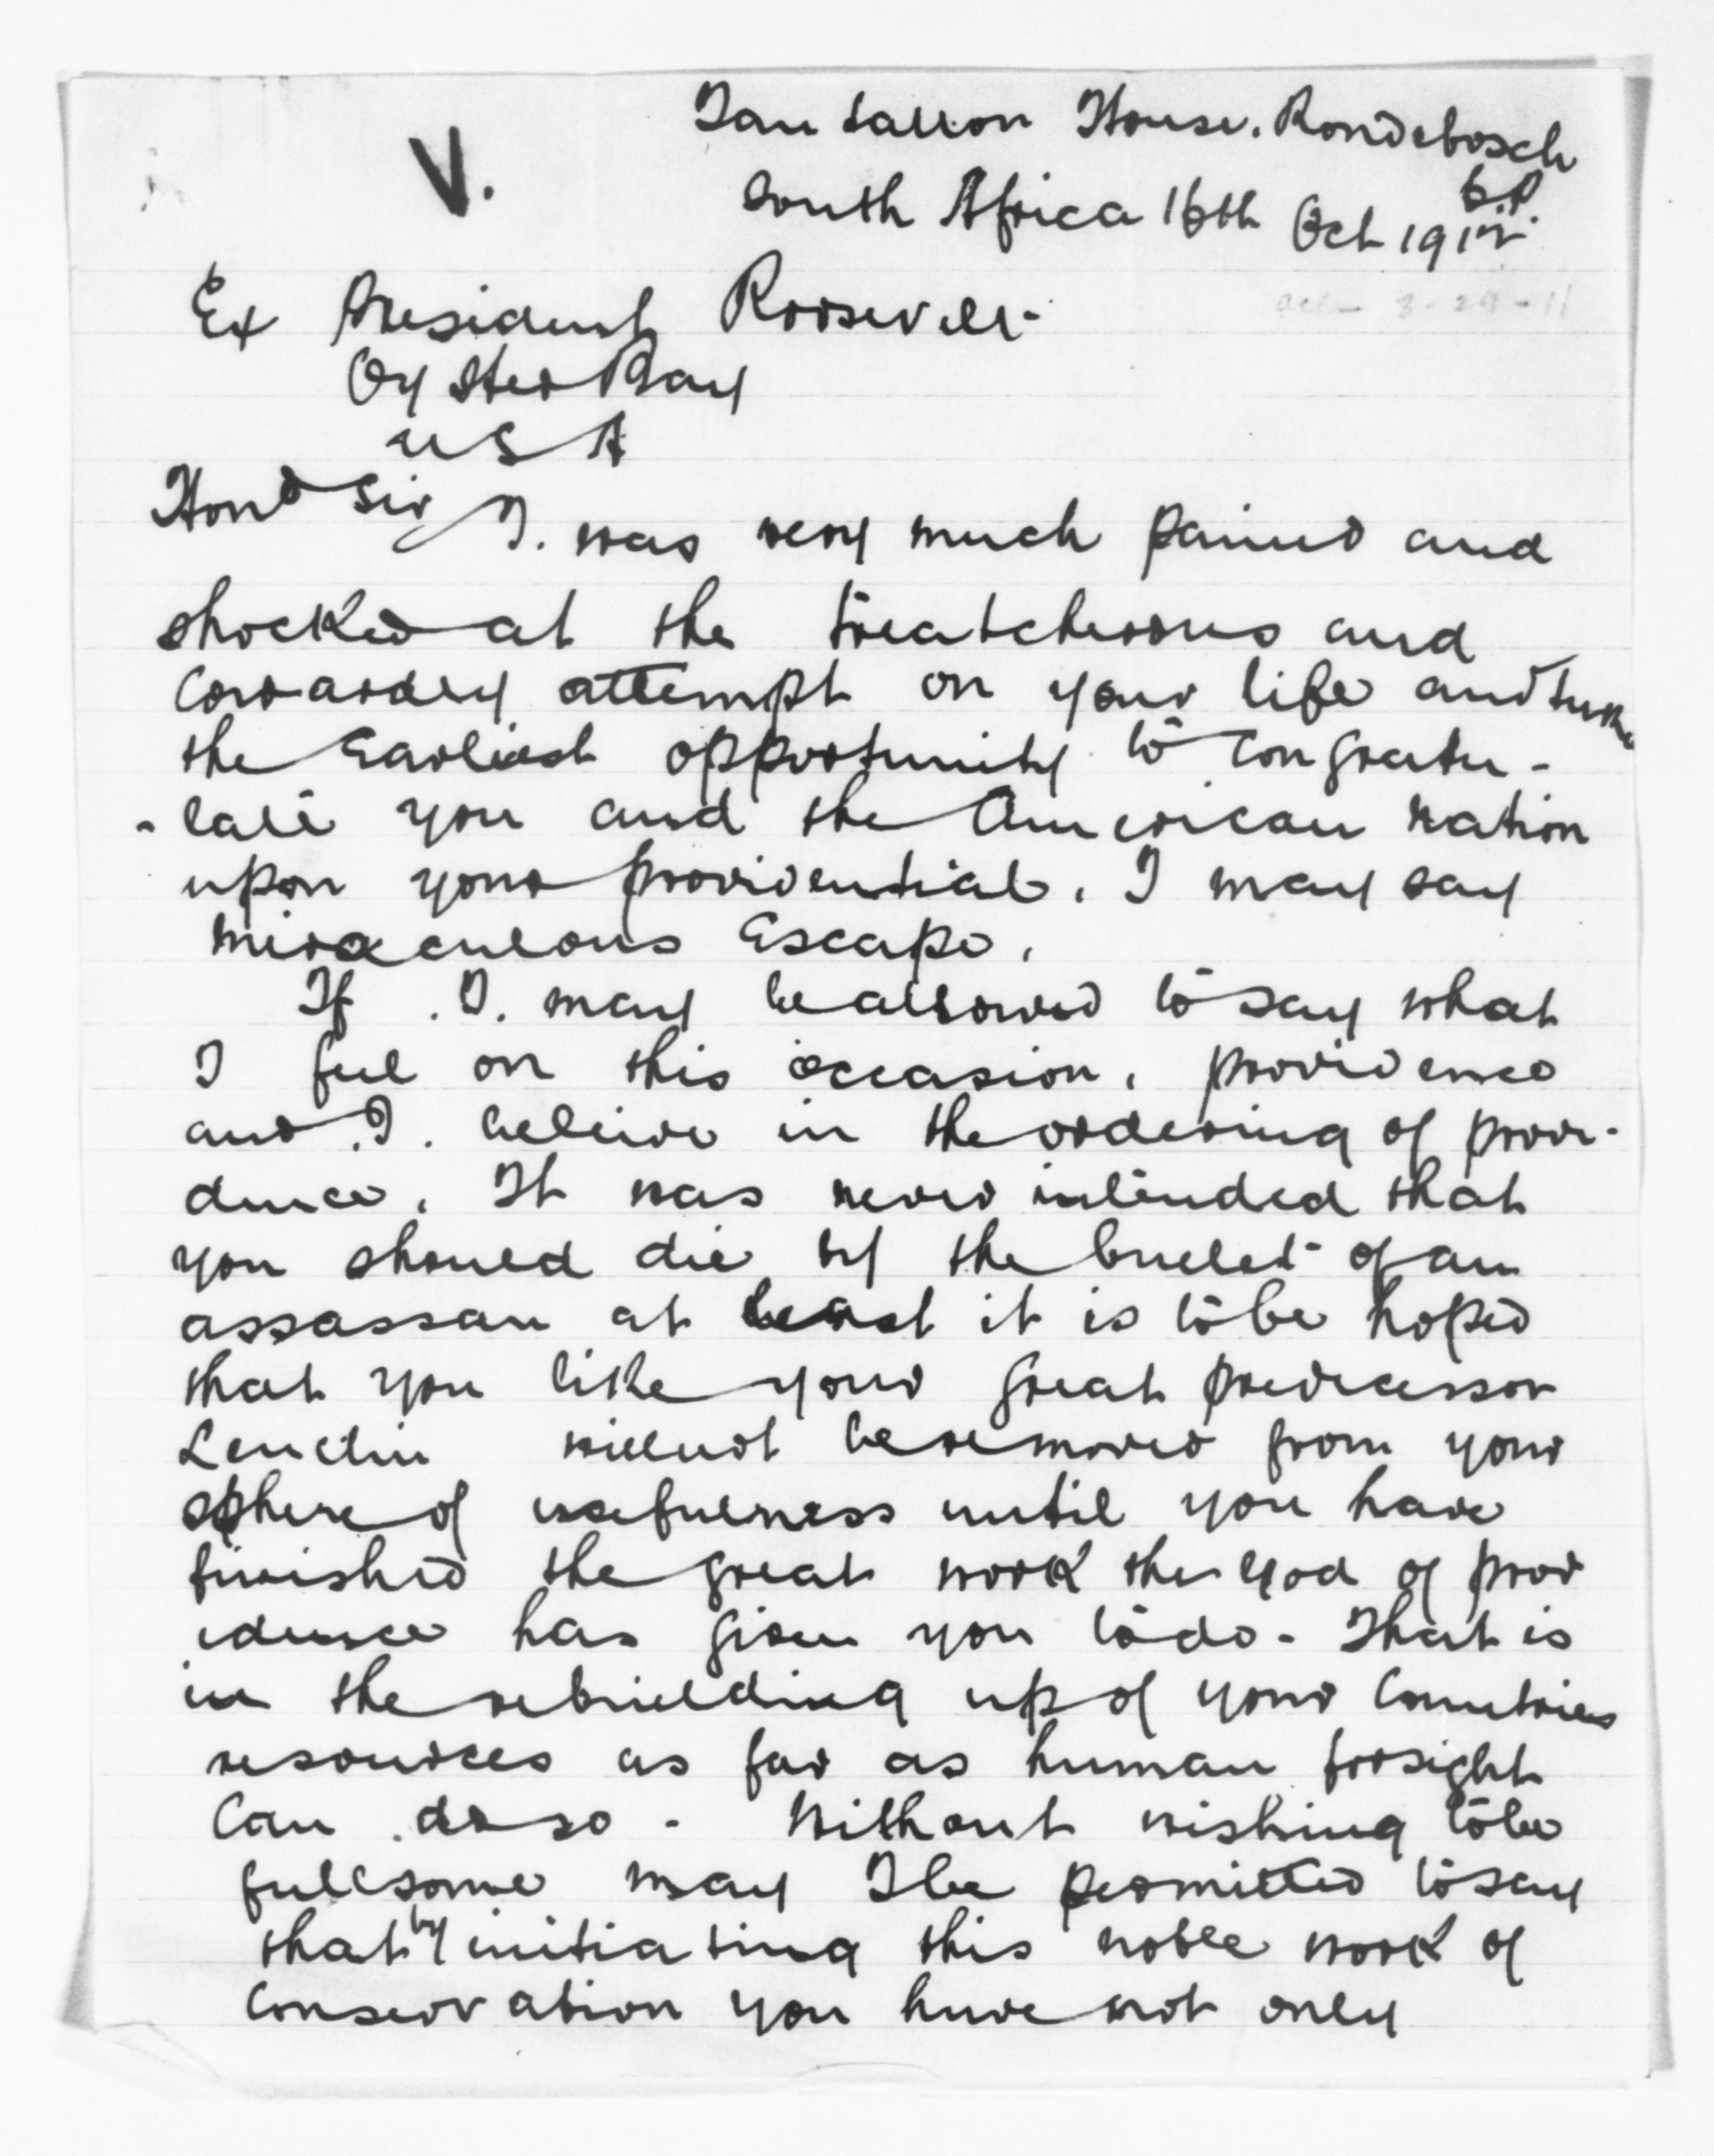 V.
Tantallon House. Rondebosch
C.P.
South Africa 16th Oct 1912
Ex President Roosevelt
Oyster Bay
U S A
Hond Sir
I. was very much pained and
shocked at the treatcherous and
Cowardly attempt on your life and
the Earliest opportunity to Congratu-
-late you and the American Nation
upon your providential. I may say
miraculous Escape.
If . I. may be allowed to say what
I feel on this occasion, providence
and . I . beleive in the ordering of provi-
dence. It was never intended that
you should die by the bullet of an
assassan at least it is to be hoped
that you like your great predecessor
will not be removed from your
sphere of usefulness until you have
finished the great work the God of prov
idence has given you to do - That is
in the rebuilding up of your Countries
resources as far as human forsight
Can do so - Without wishing to be
fullsome may I be permitted to say
that by initiating this noble work of
Conservation you have not only